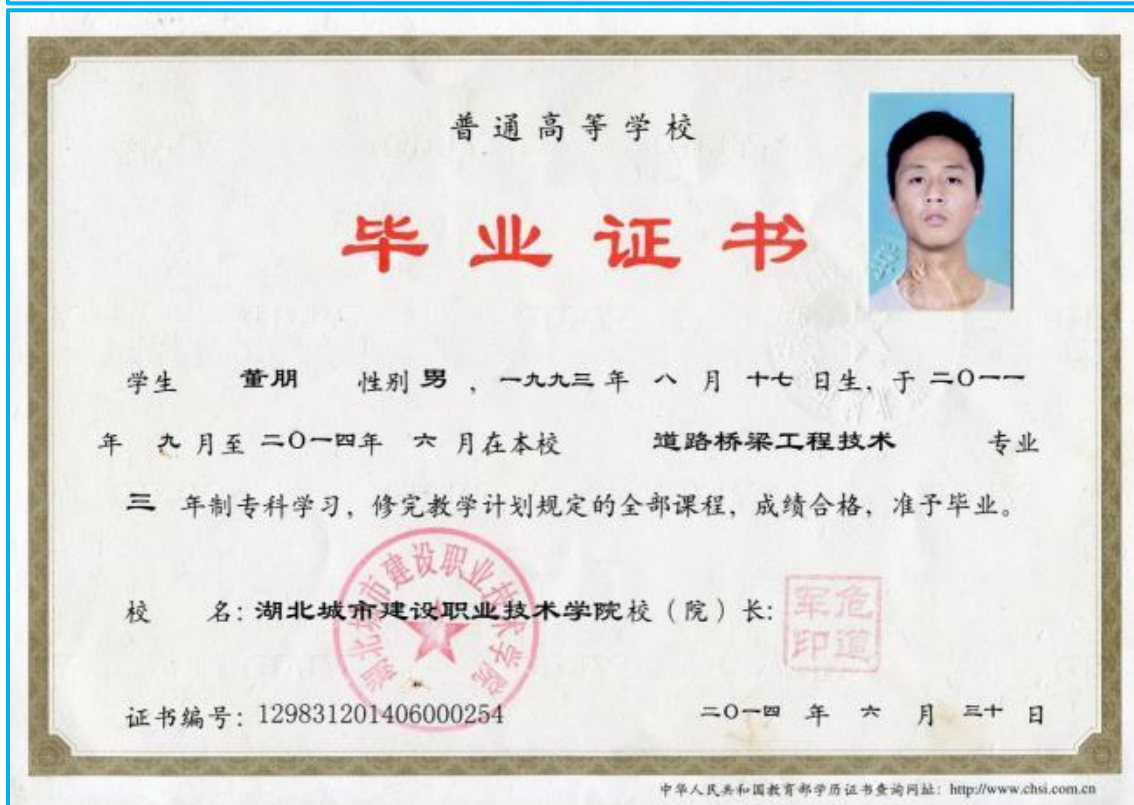 普通高等学校
毕业证书
学生 董朋 性别 男 ，一九九三 年 八 月 十七 日生，于 二〇一一
年 九 月至 二〇一四年 六 月在本校 道路桥梁工程技术 专业
三 年制专科学习，修完教学计划规定的全部课程，成绩合格，准予毕业。
校 名：湖北城市建设职业技术学院校（院）长：
湖北城市建设职业技术学院
危道军印
证书编号：129831201406000254 二〇一四 年 六 月 三十 日
中华人民共和国教育部学历证书查询网址：http://www.chsi.com.cn